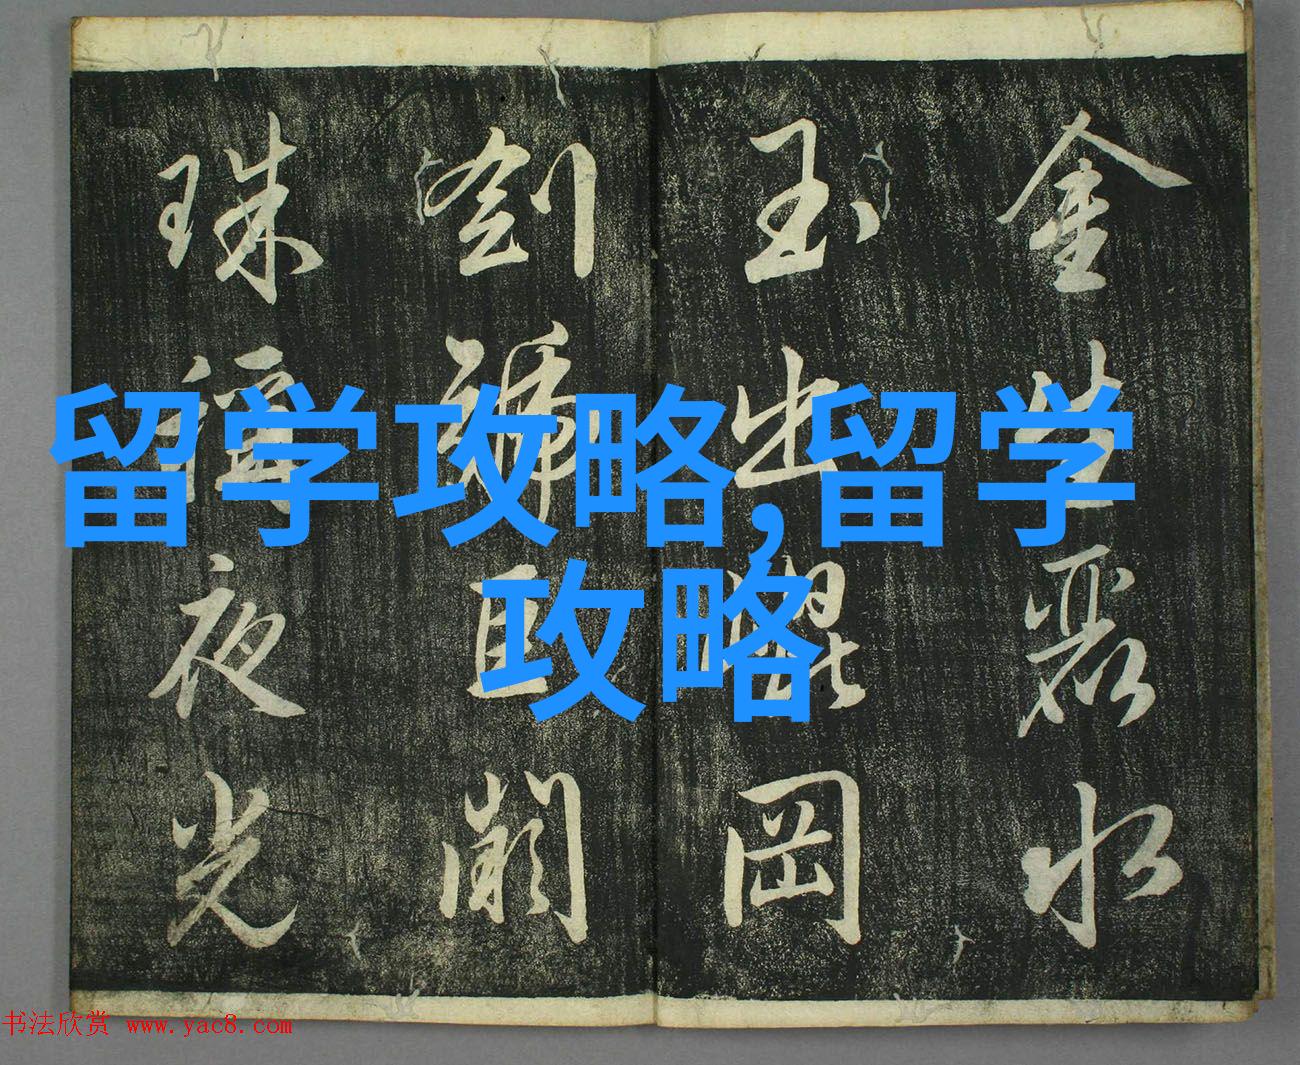 金生麗水
玉出崐岡
劍號巨闕
珠稱夜光
留学攻略,留学
攻略
书法欣赏 www.yac8.com